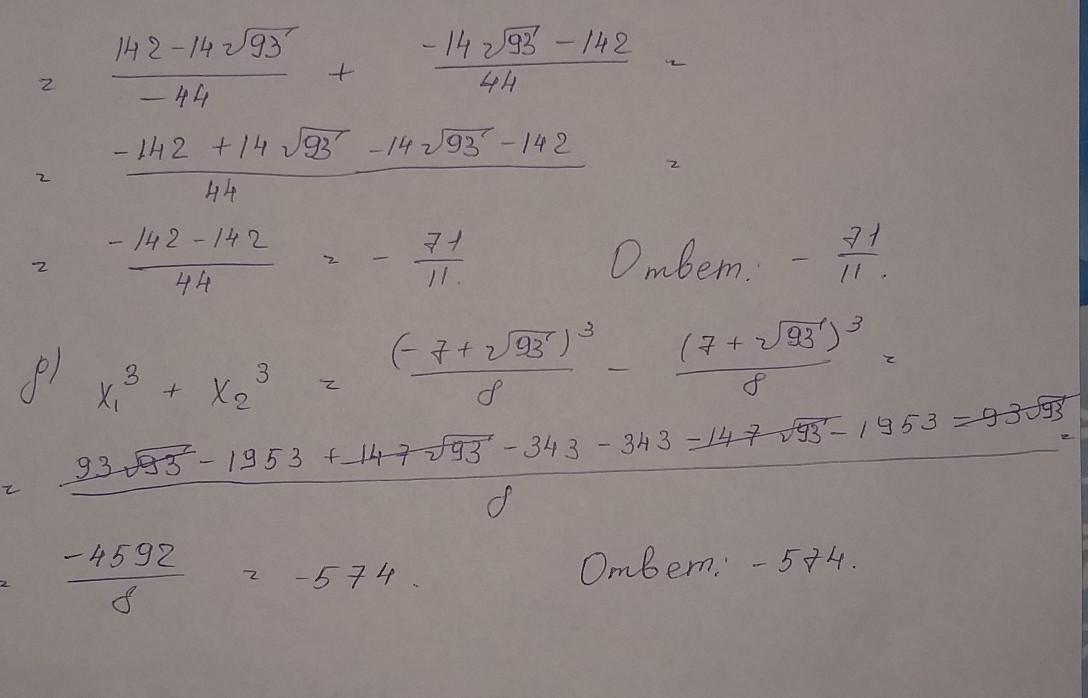 = (142 - 14√93)/(-44) + (-14√93 - 142)/44 =
= (-142 + 14√93 - 14√93 - 142)/44 =
= (-142 - 142)/44 = - 71/11. Ответ: - 71/11.
д) x₁³ + x₂³ = (-7 + √93)³/8 - (7 + √93)³/8 =
= (93√93 - 1953 + 147√93 - 343 - 343 - 147√93 - 1953 - 93√93)/8 =
= -4592/8 = -574. Ответ: - 574.